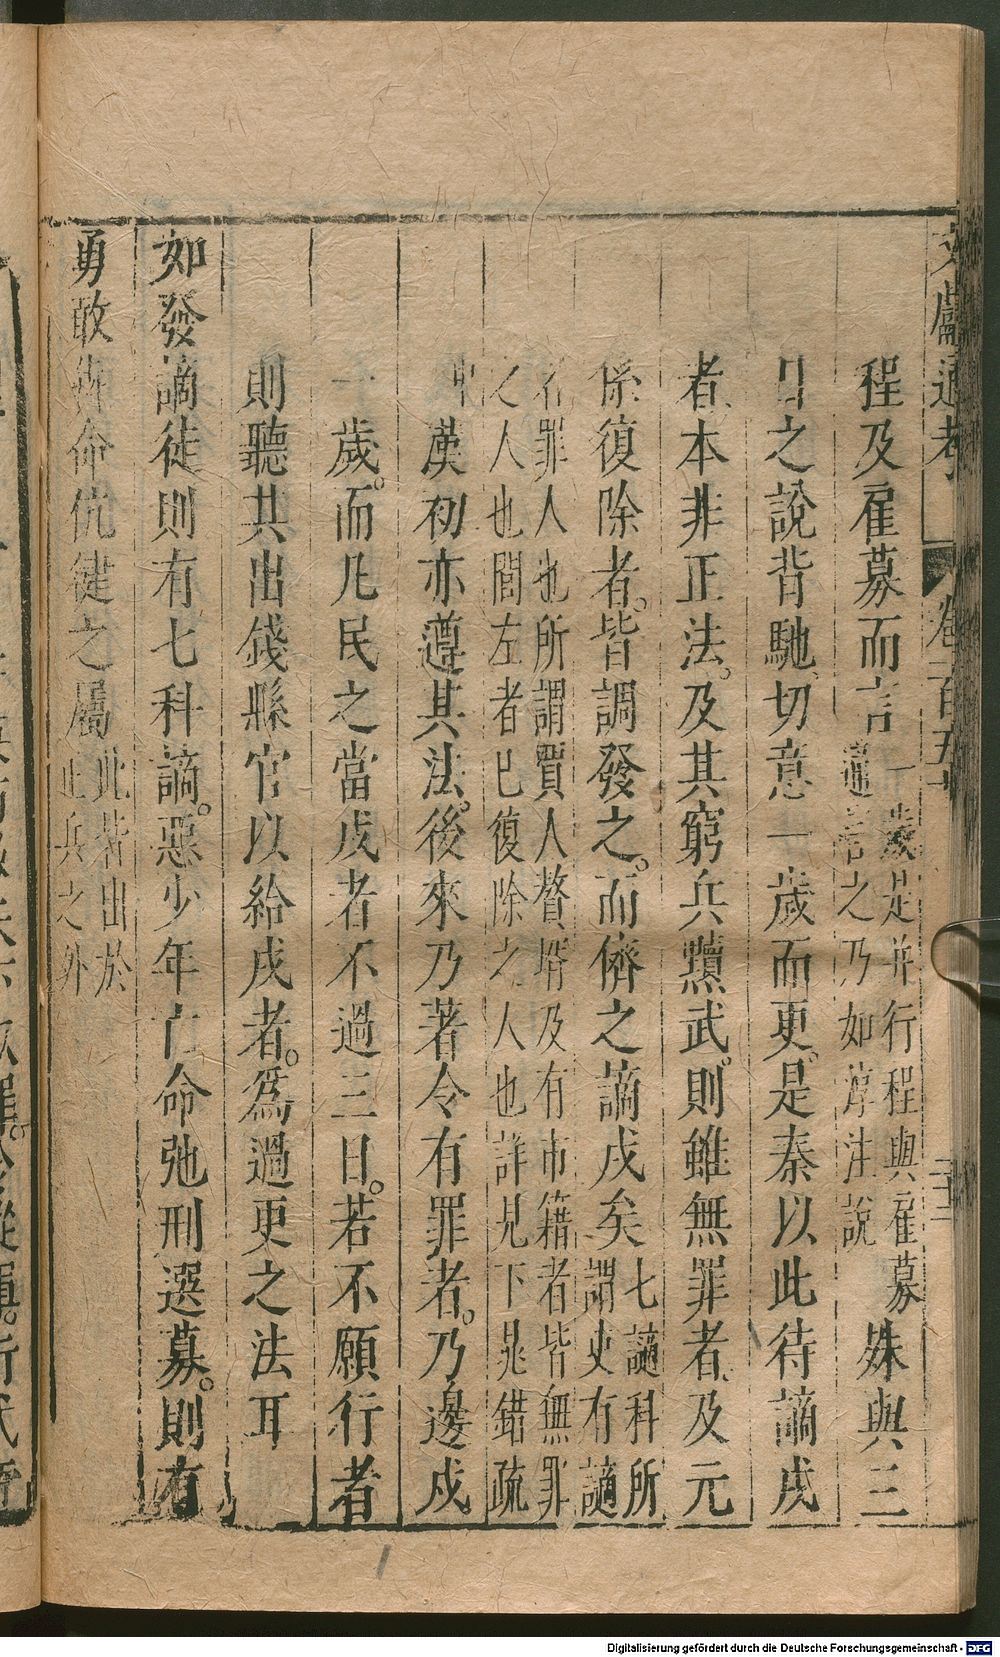 文獻通考 卷一百五十 二十三
程及雇募而言一歲是并行程與雇募
適言之乃如淳注說殊與三
日之說背馳切意一歲而更是秦以此待謫戍
者本非正法及其窮兵黷武則雖無罪者及元
係復除者皆調發之而儕之謫戍矣七謫科所
謂吏有謫
名罪人也所謂賈人贅壻及有市籍者皆無罪
之人也閭左者已復除之人也詳見下晁錯疏
中漢初亦遵其法後來乃著令有罪者乃邊戍
一歲而凡民之當戍者不過三日若不願行者
則聽其出錢縣官以給戍者為過更之法耳
如發謫徒則有七科謫惡少年亡命弛刑選募則有
勇敢奔命伉健之屬此皆出於
正兵之外
Digitalisierung gefördert durch die Deutsche Forschungsgemeinschaft - DFG